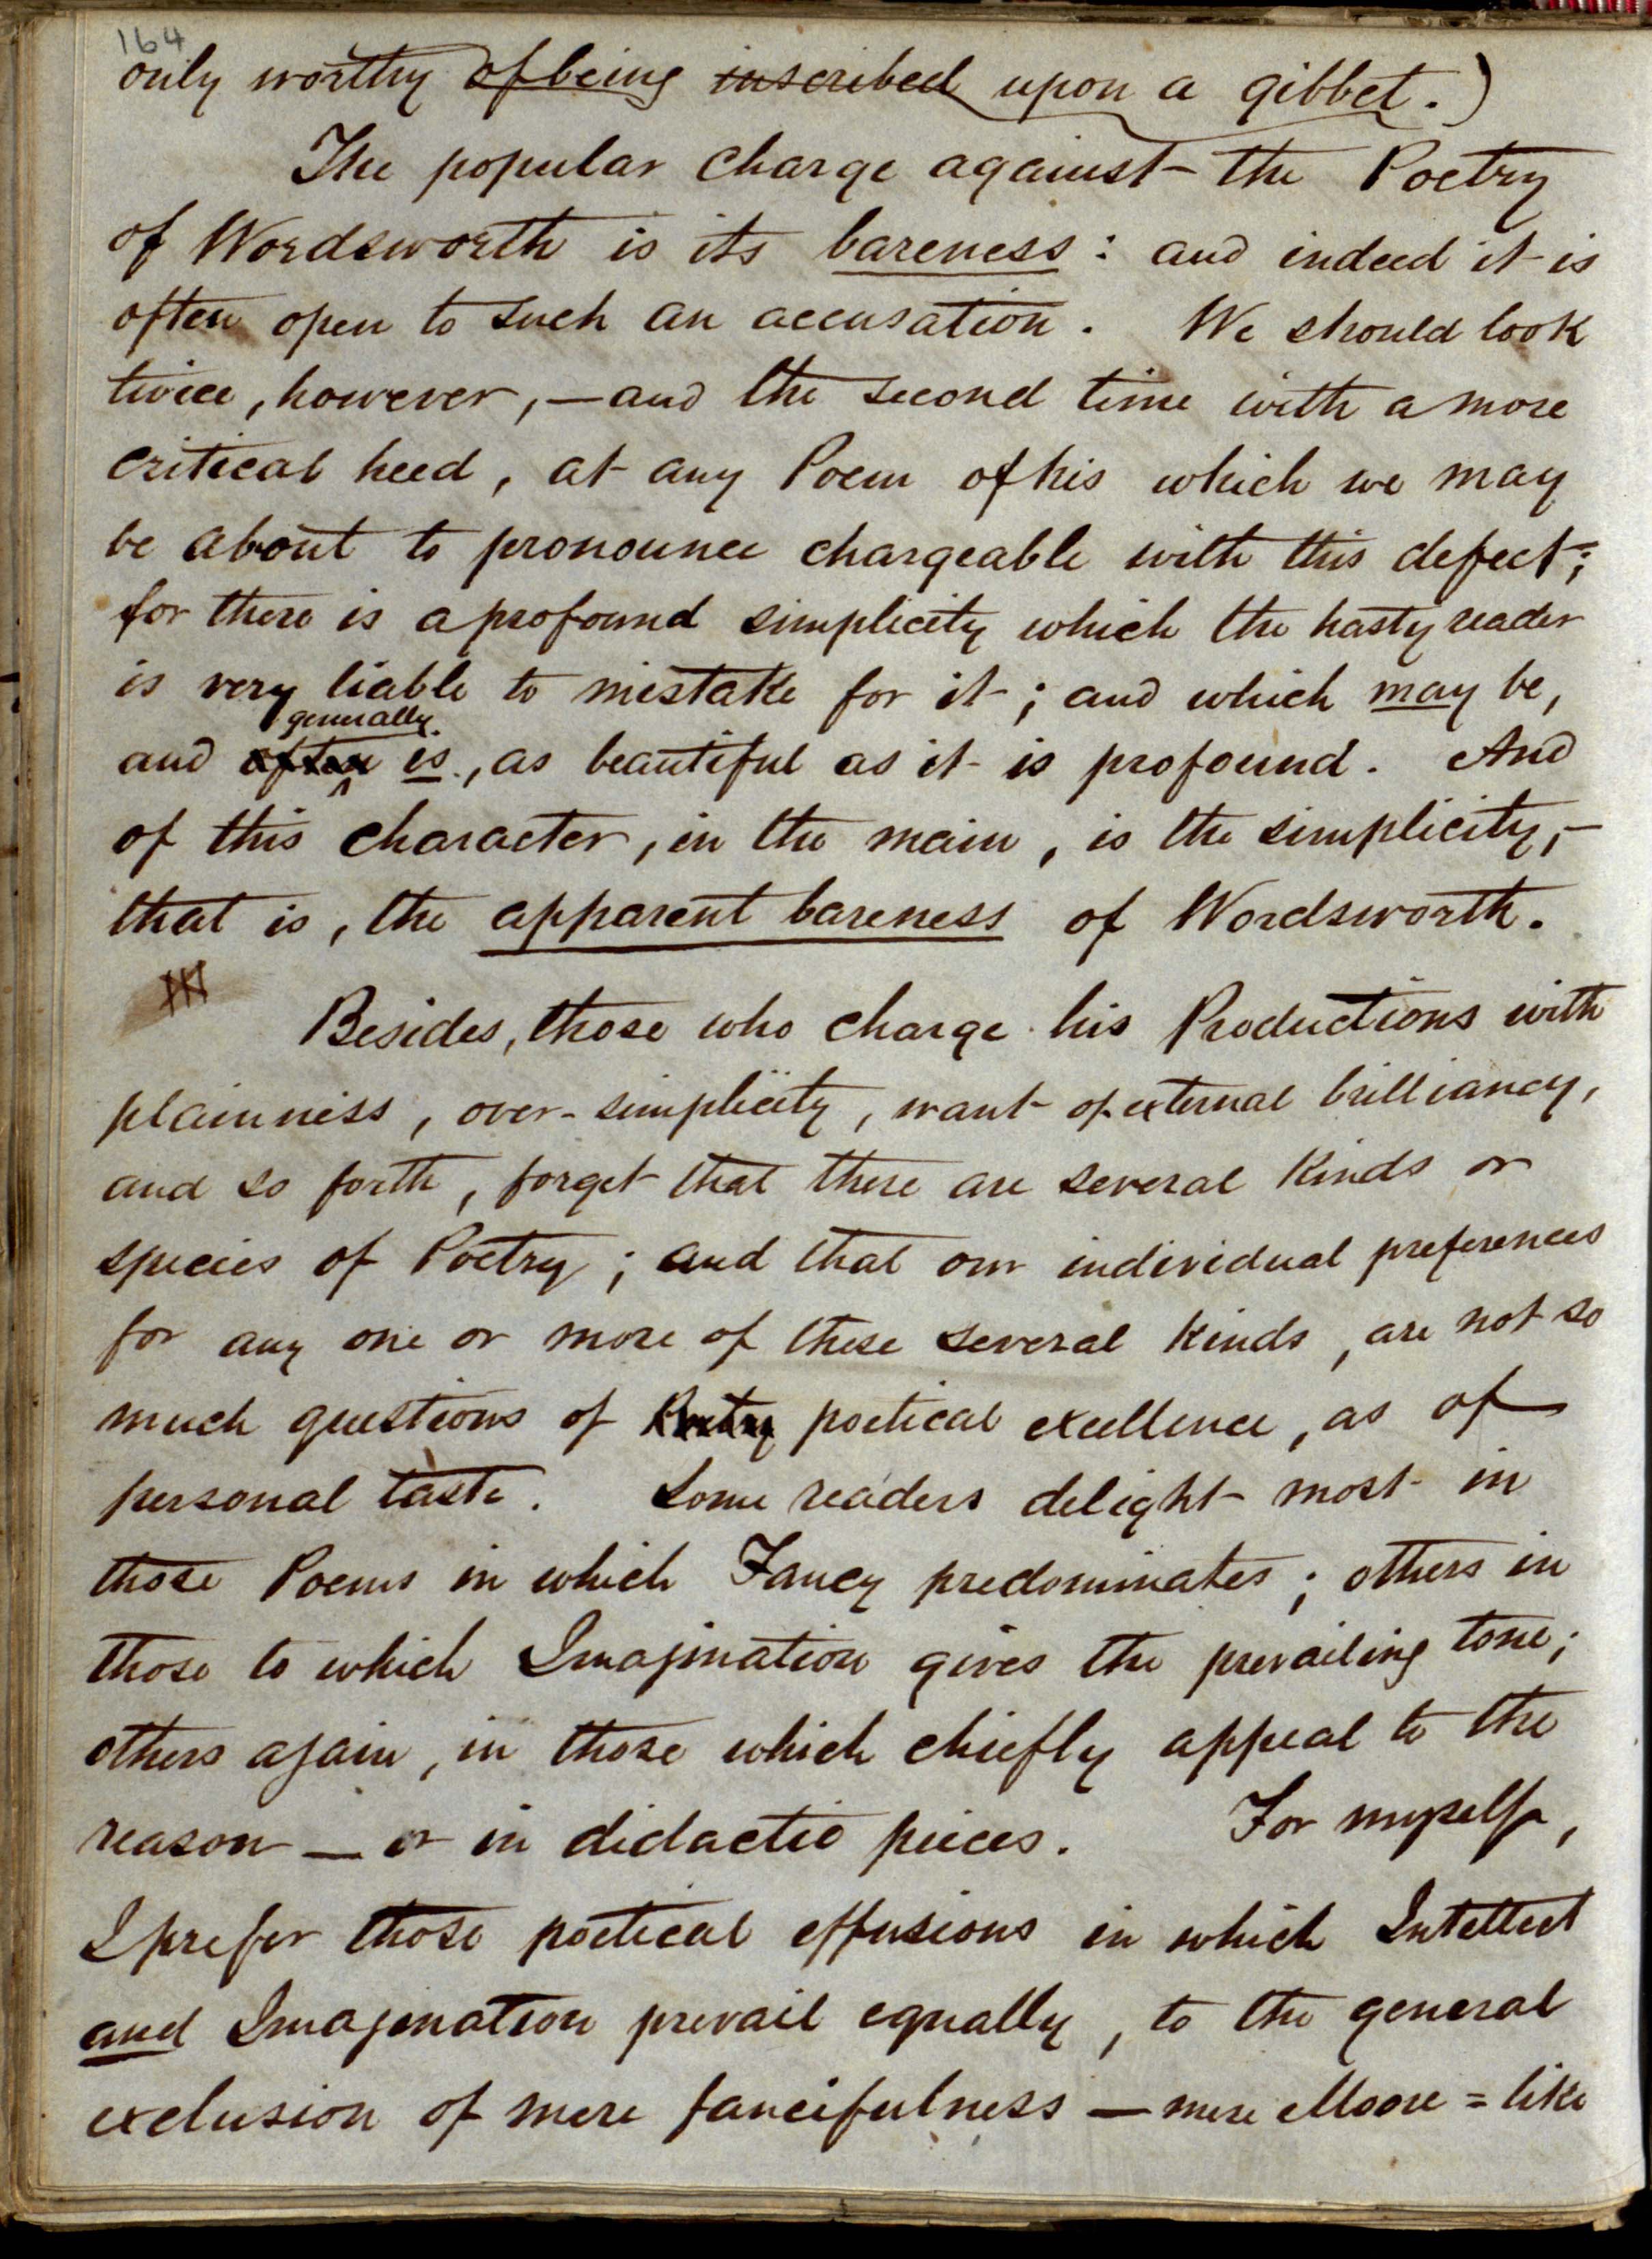 164
only worthy of being inscribed upon a gibbet.)
The popular charge against the Poetry
of Wordsworth is its bareness: and indeed it is
often open to such an accusation. We should look
twice, however, — and the second time with a more
critical heed, at any Poem of his which we may
be about to pronounce chargeable with this defect;
for there is a profound simplicity which the hasty reader
is very liable to mistake for it; and which may be,
generally
and often is, as beautiful as it is profound. And
of this character, in the main, is the simplicity,—
that is, the apparent bareness of Wordsworth.
Besides, those who charge his Productions with
plainness, over-simplicity, want of external brilliancy,
and so forth, forget that there are several kinds or
species of Poetry; and that our individual preferences
for any one or more of these several kinds, are not so
much questions of Poetry poetical excellence, as of
personal taste. Some readers delight most in
those Poems in which Fancy predominates; others in
those to which Imagination gives the prevailing tone;
others again, in those which chiefly appeal to the
reason — or in didactic pieces. For myself,
I prefer those poetical effusions in which Intellect
and Imagination prevail equally, to the general
exclusion of mere fancifulness — mere Moore=like